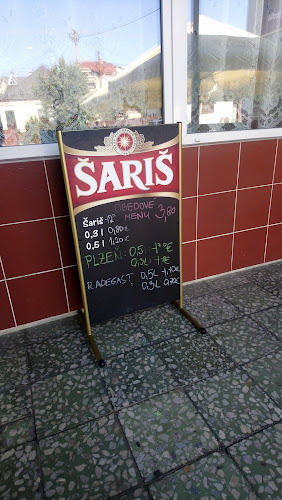 ŠARIŠ
OBEDOVÉ
MENU 3,80
Šariš 12°
0,3l 0,80€
0,5l 1,20€
PLZEŇ: 0,5l
0,3l
RADEGAST 0,5l 1,10€
0,3l 0,70€